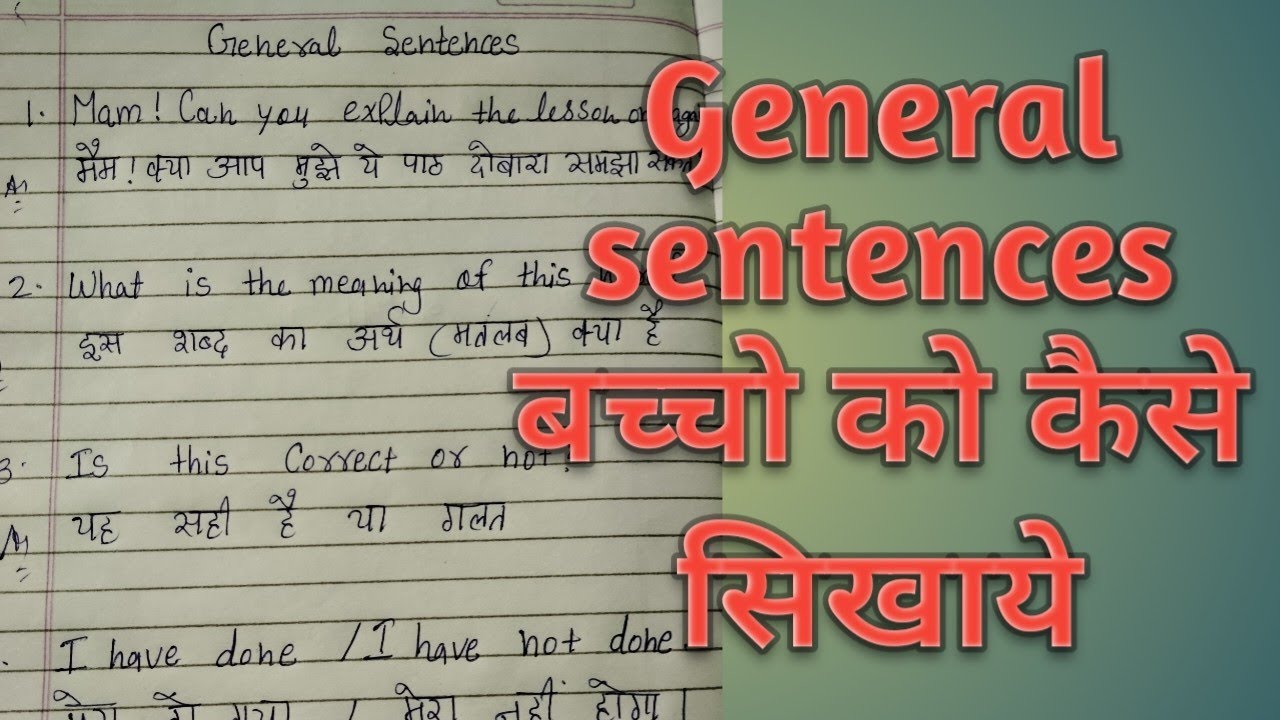 General Sentences
1. Mam! Can you explain the lesson
मैम! क्या आप मुझे ये पाठ दोबारा समझा
2. What is the meaning of this
इस शब्द का अर्थ (मतलब) क्या है
3. Is this Correct or not?
यह सही है या गलत
I have done / I have not done.
मेरा हो गया / मेरा नहीं होगा।
General
sentences
बच्चो को कैसे
सिखाये